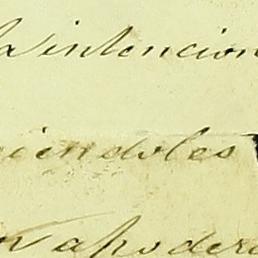 la intencion
iendoles
n apoder